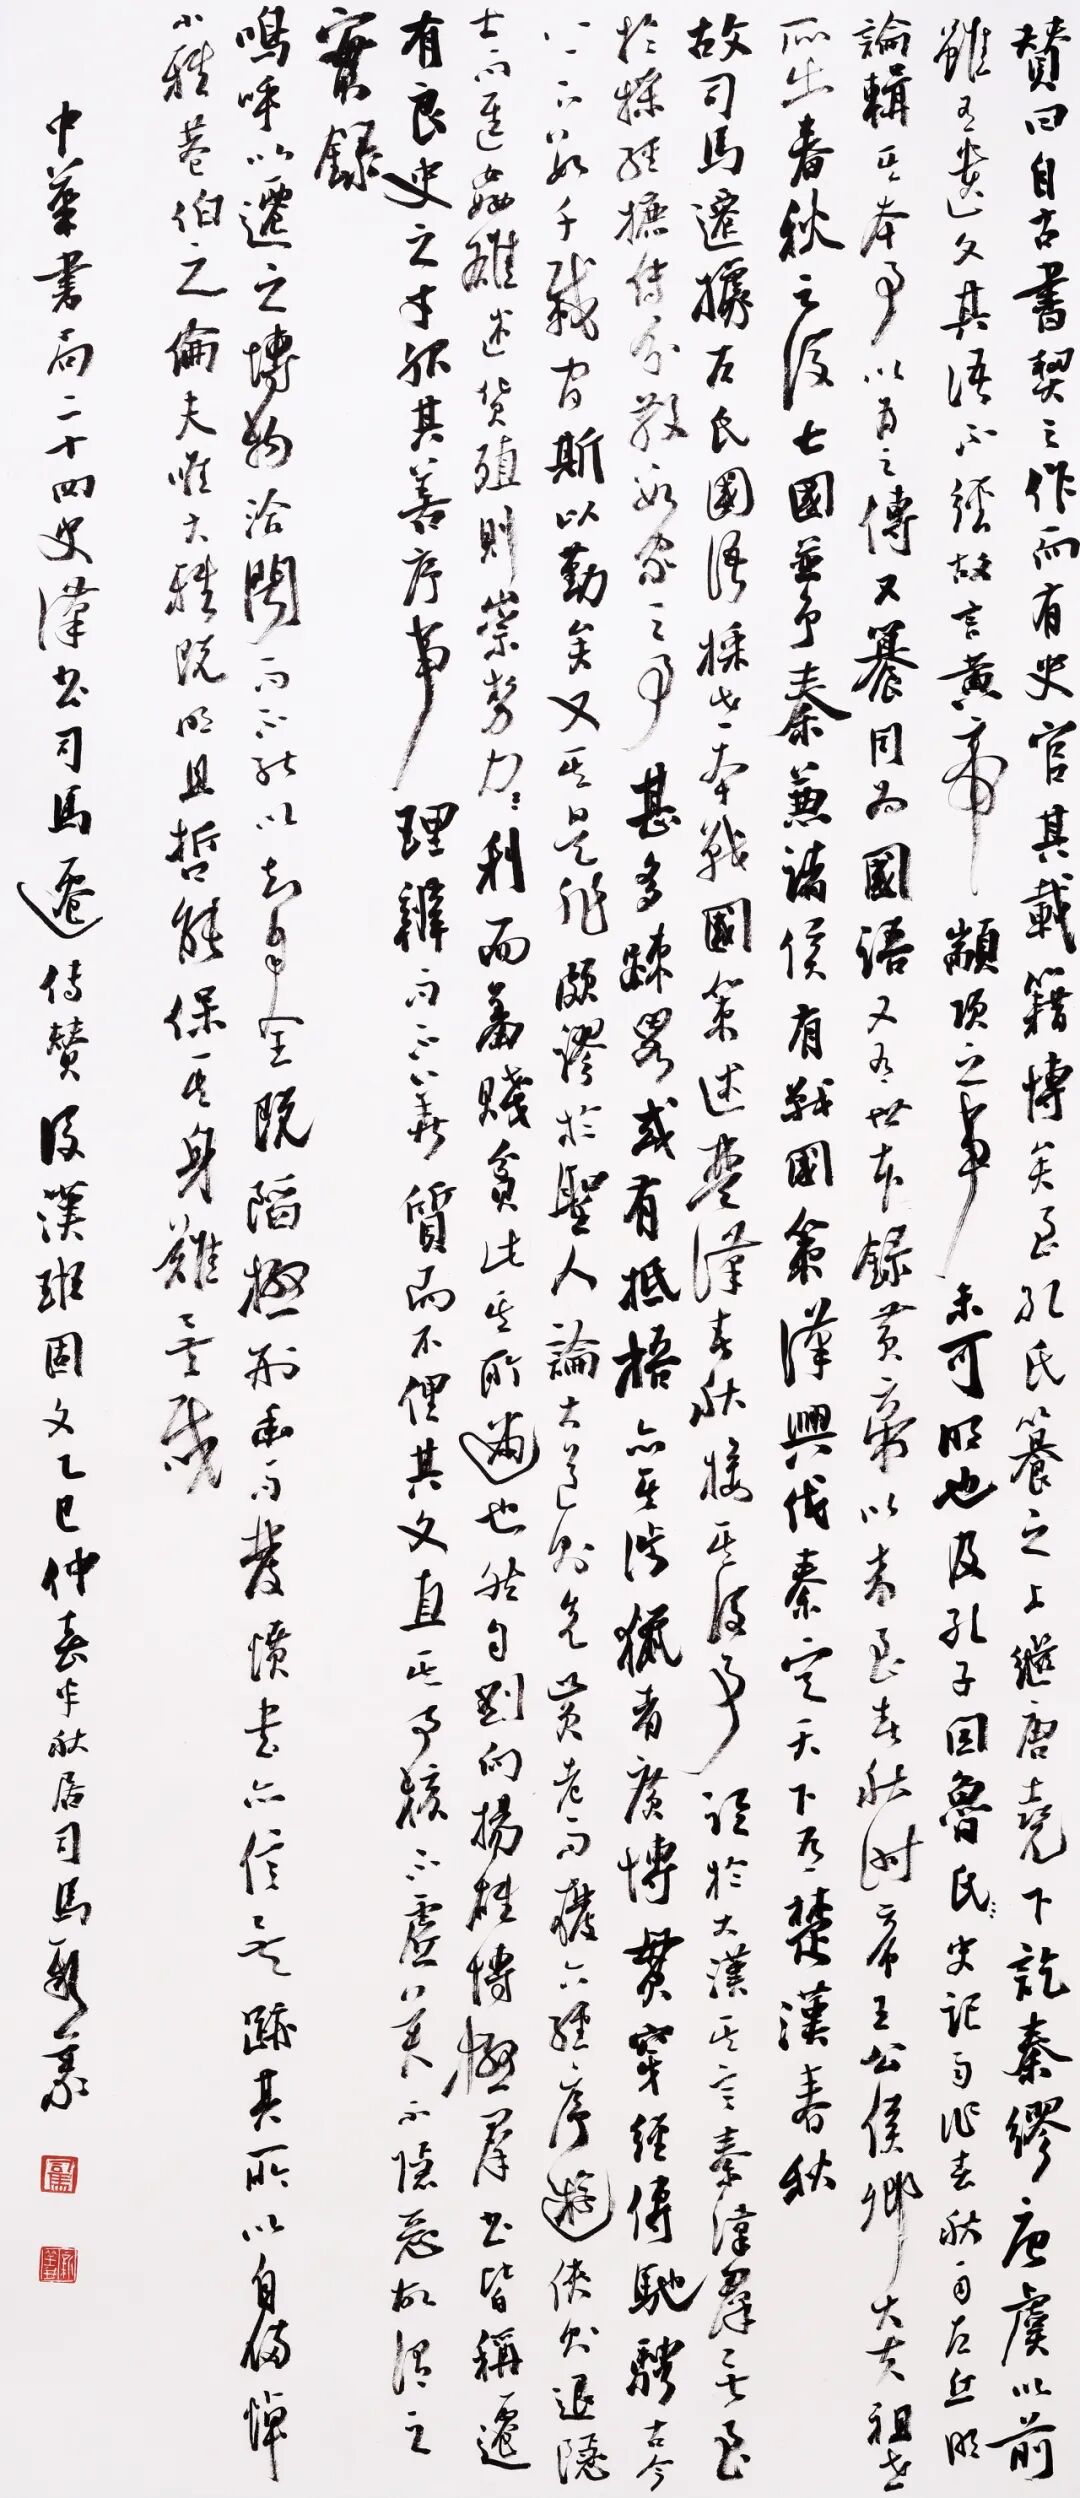 赞曰自古書契之作而有史官其載籍博矣至孔氏篹之上繼唐堯下訖秦繆唐虞以前
雖有遺文其語不經故言黃帝顓頊之事未可明也及孔子因魯氏史記而作春秋而左丘明
論輯其本事以為之傳又篹同為國語又有世本錄黃帝以來至春秋時帝王公侯卿大夫祖世
所出春秋之後七國並爭秦兼諸侯有戰國策漢興伐秦定天下有楚漢春秋
故司馬遷據左氏國語採世本戰國策述楚漢春秋接其後事訖於大漢其言秦漢詳矣至
於採經摭傳分散數家之事甚多疎略或有抵梧亦其涉獵者廣博貫穿經傳馳騁古今
上下數千載間斯以勤矣又其是非頗謬於聖人論大道則先黃老而後六經序遊俠則退隱
士而進姦雄述貨殖則崇勢力利而羞賤貧此其所蔽也然自劉向揚雄博極群書皆稱遷
有良史之才服其善序事理辨而不華質而不俚其文直其事核不虛美不隱惡故謂之
實錄
嗚呼以遷之博物洽聞而不能以知自全既陷極刑幽而發憤書亦信矣跡其所以自傷悼
小雅巷伯之倫夫唯大雅既明且哲能保其身難矣哉
中華書局二十四史漢書司馬遷傳赞後漢班固文乙巳仲春半秋居司馬